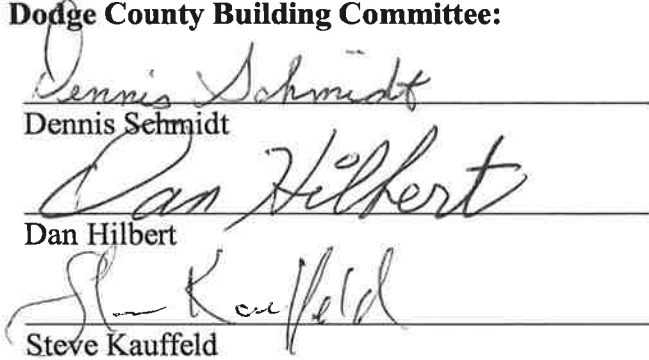 Dodge County Building Committee:
Dennis Schmidt
Dennis Schmidt
Dan Hilbert
Dan Hilbert
Steve Kauffeld
Steve Kauffeld